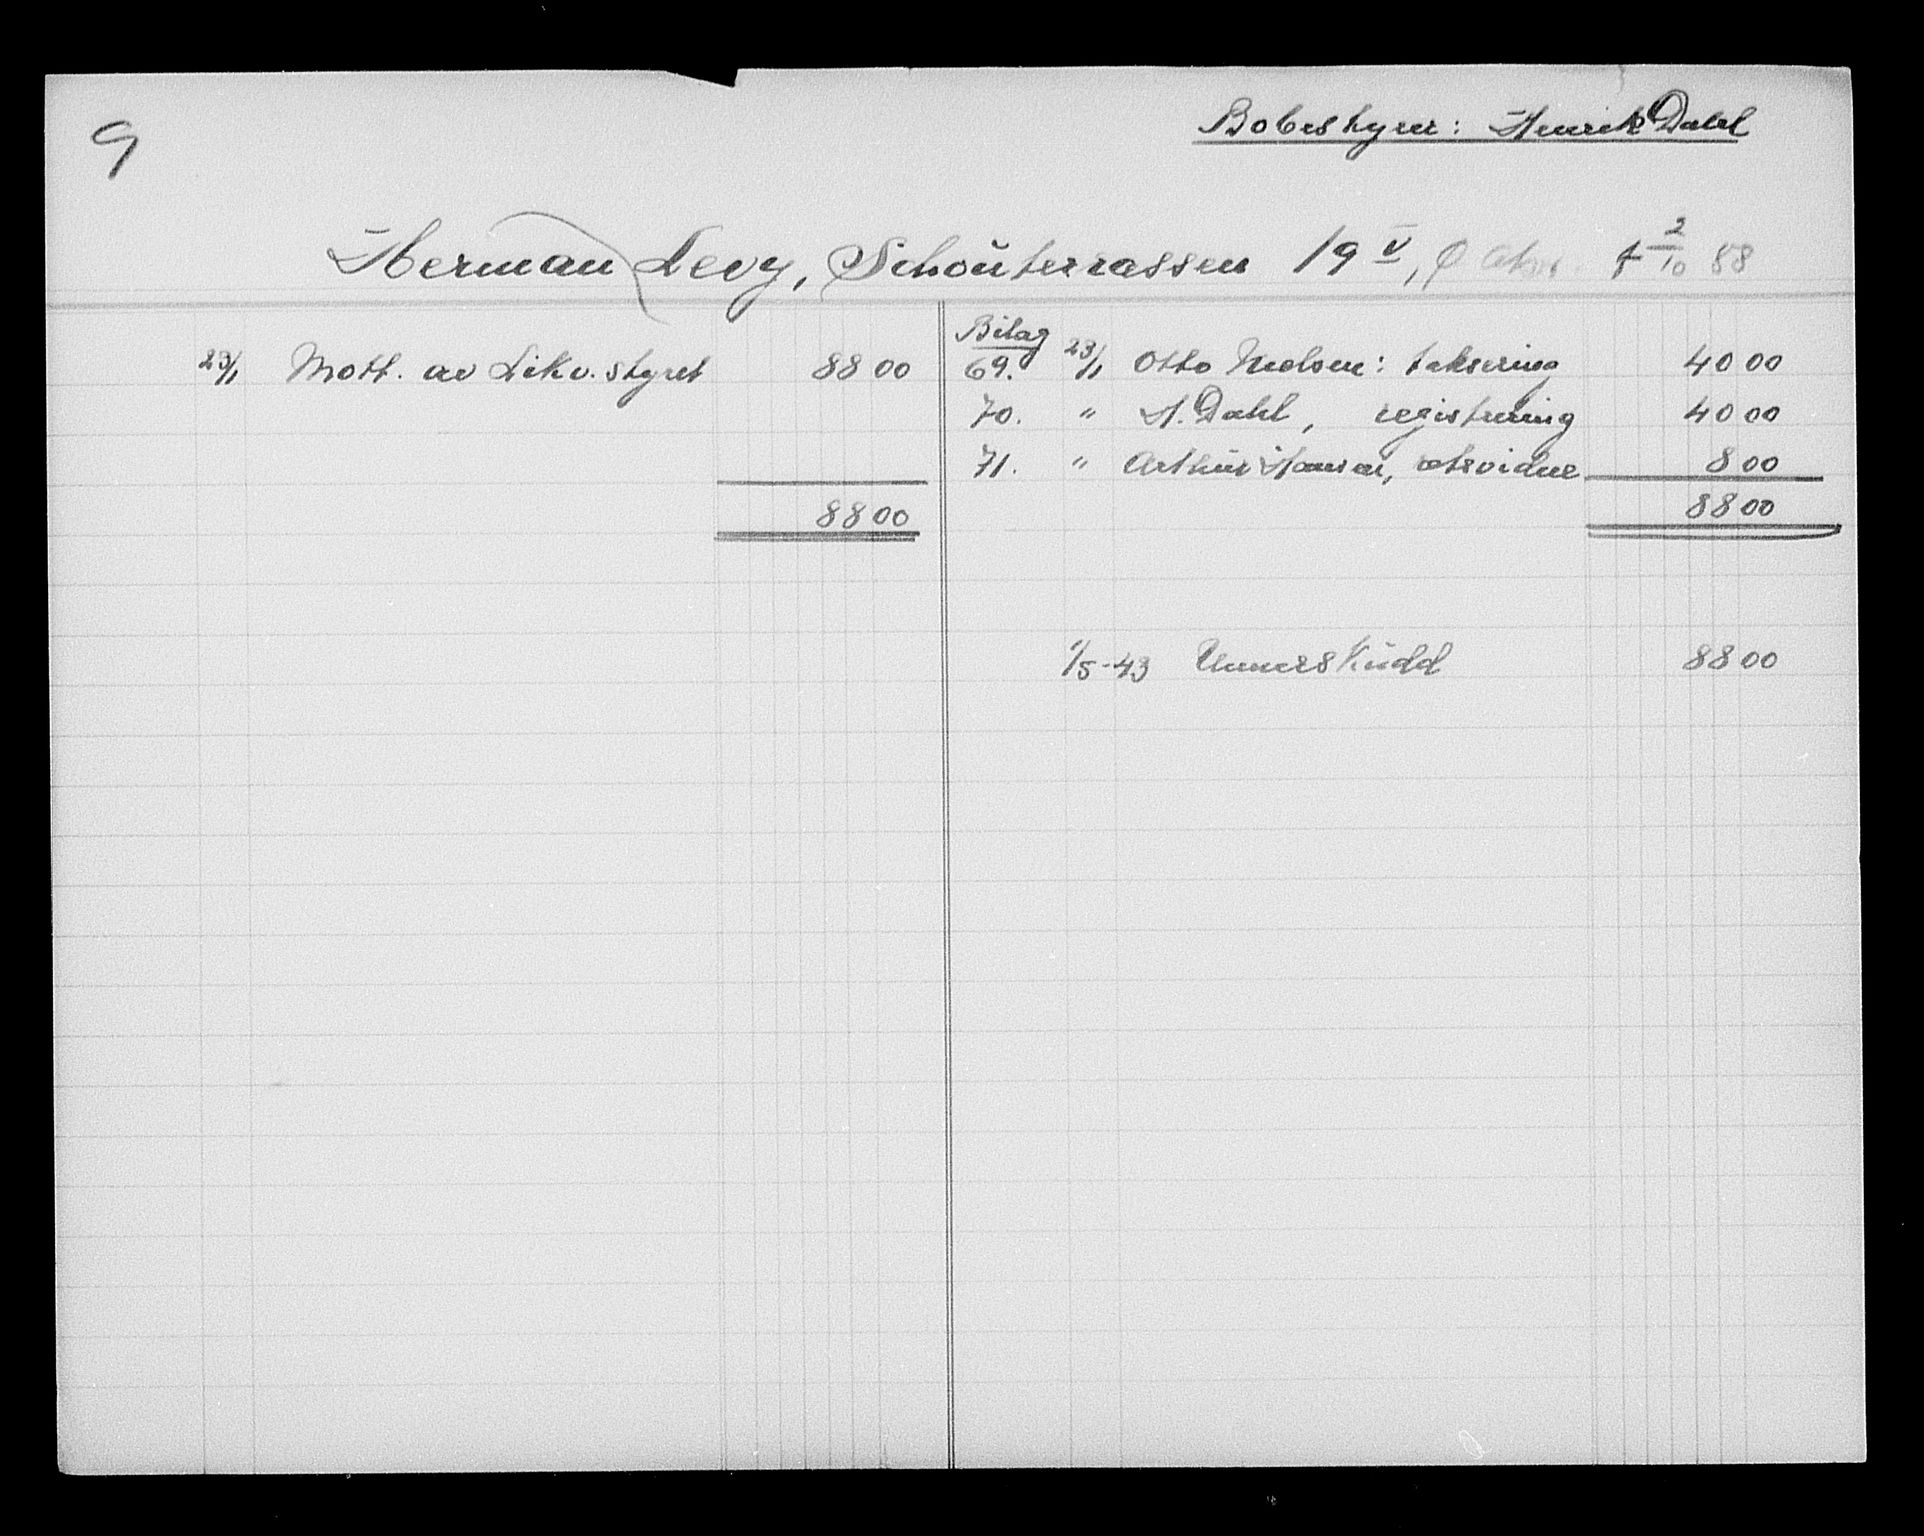 9
Bobestyrer: Henrik Dahl
Herman Levy, Schoüterrassen 19 V, f 2/10 88
23/1 Mott. av Likv. styret 88 00
88 00
Bilag
69. 23/1 Otto Nielsen: taksering 40 00
70. " H. Dahl, registrering 40 00
71. " Arthür Hansen, rettsvidne 8 00
88 00
1/5-43 Underskudd 88 00